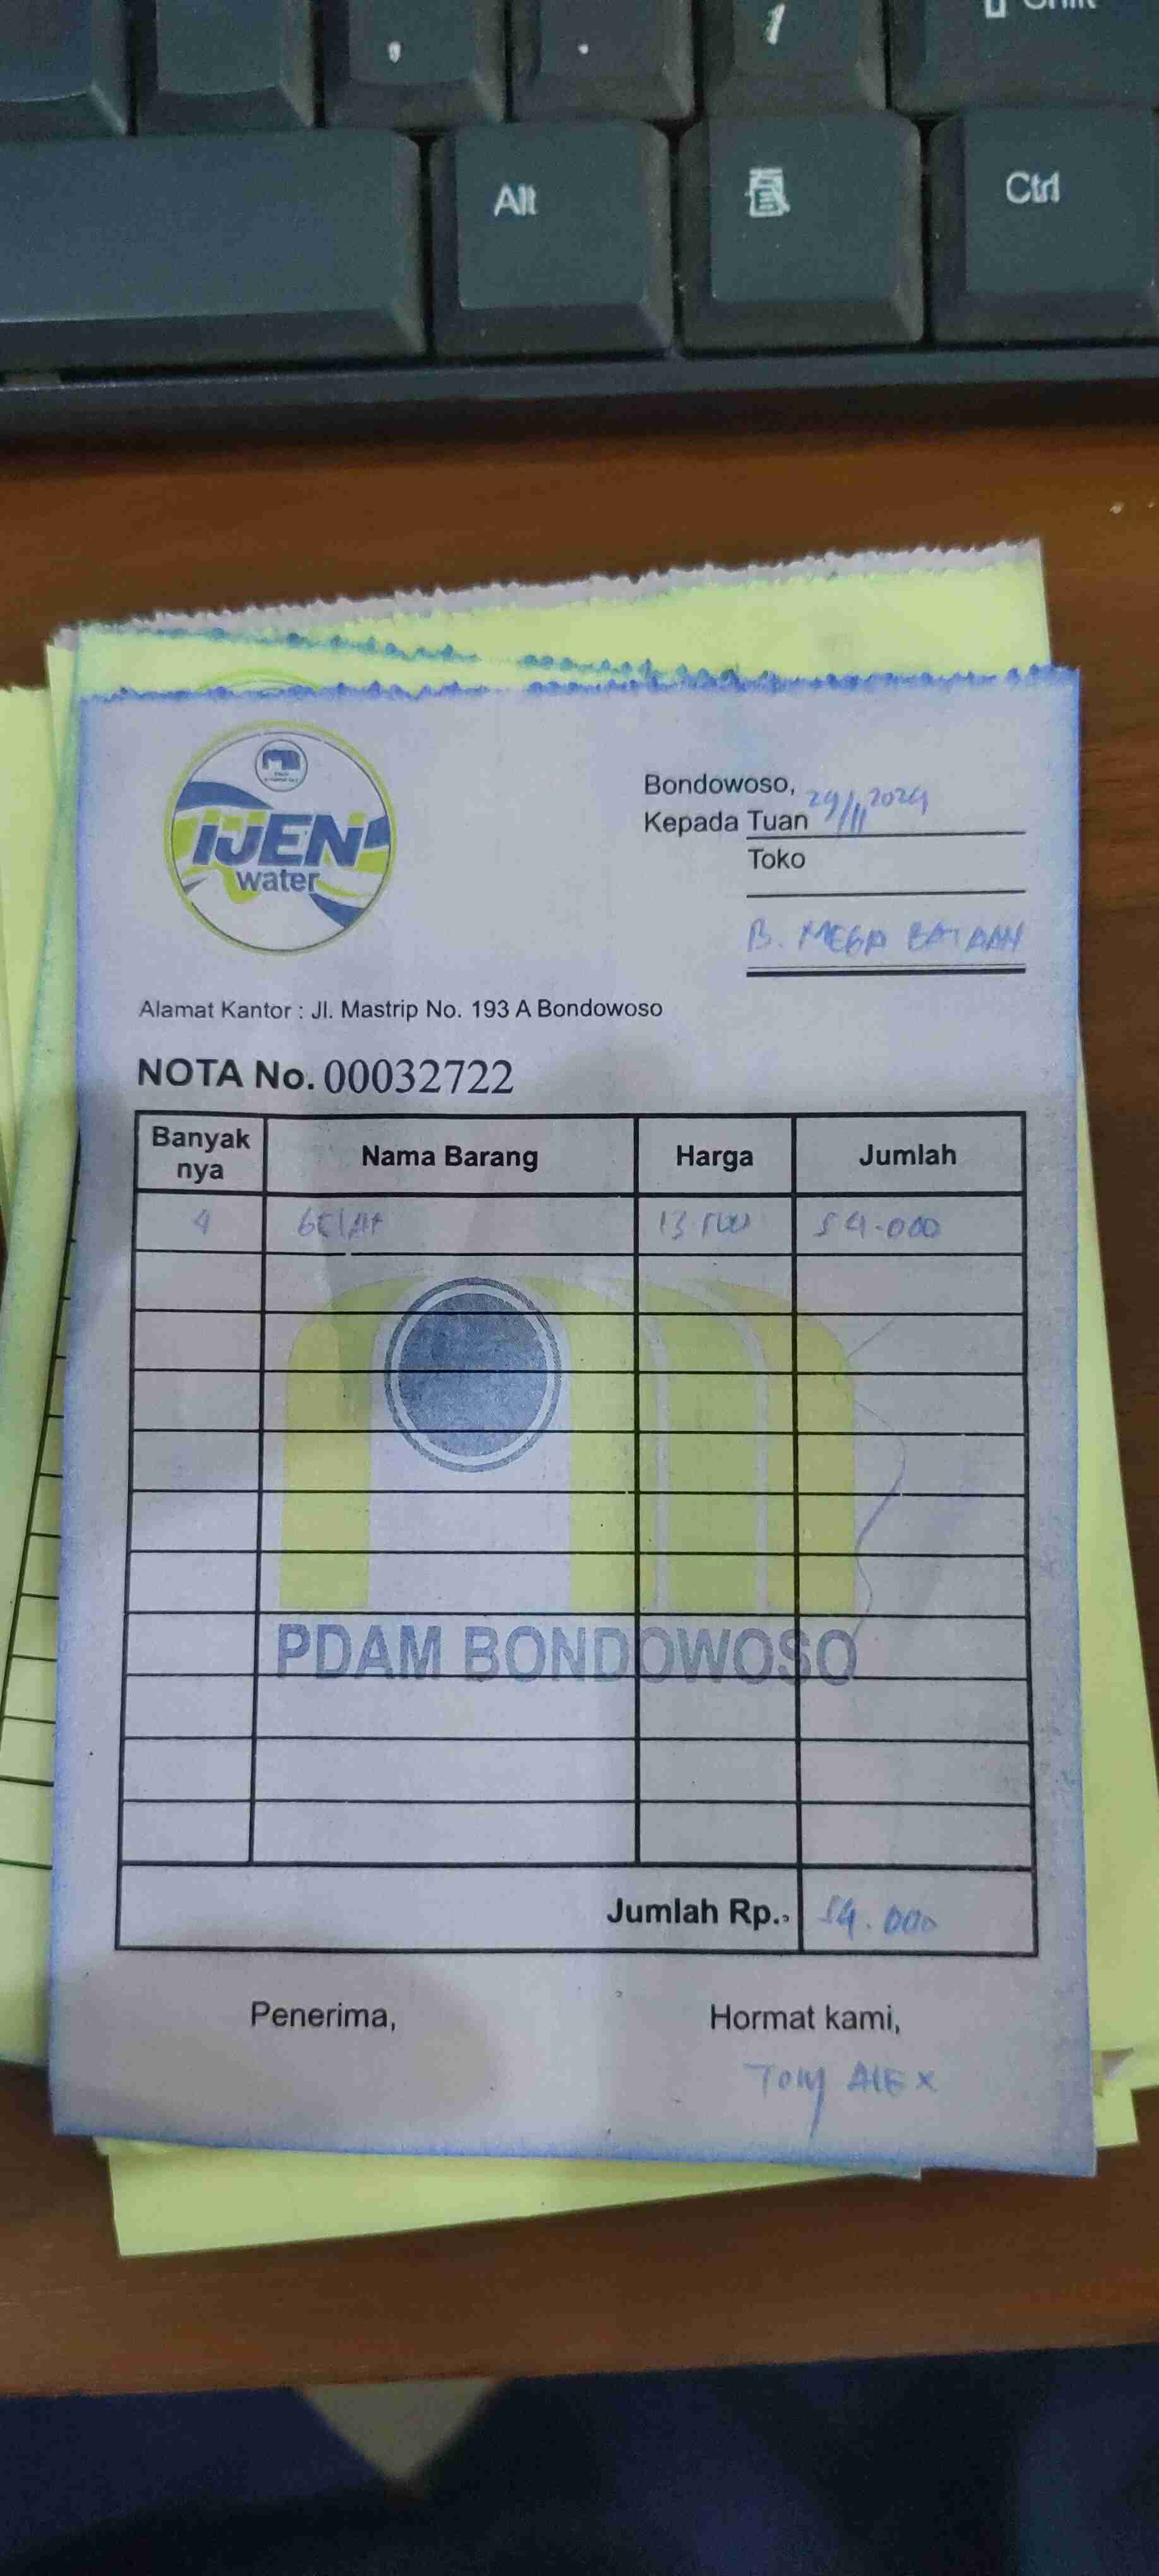 Shift
Alt
Ctrl
IJEN
water
Bondowoso, 29/11 2024
Kepada Tuan
Toko
B. MEGA BATAAN
Alamat Kantor : Jl. Mastrip No. 193 A Bondowoso
NOTA No. 00032722
Banyak nya Nama Barang Harga Jumlah
4 GELAS 13 500 54.000
PDAM BONDOWOSO
Jumlah Rp., 54.000
Penerima, Hormat kami,
Tony ALEX